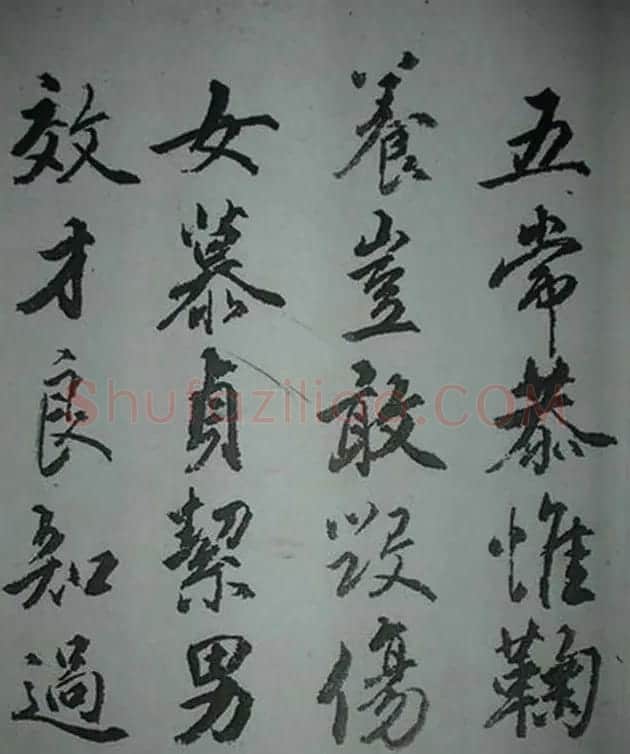 五常恭惟鞠
養豈敢毀傷
女慕貞絜男
效才良知過
Shufaziliao.COM